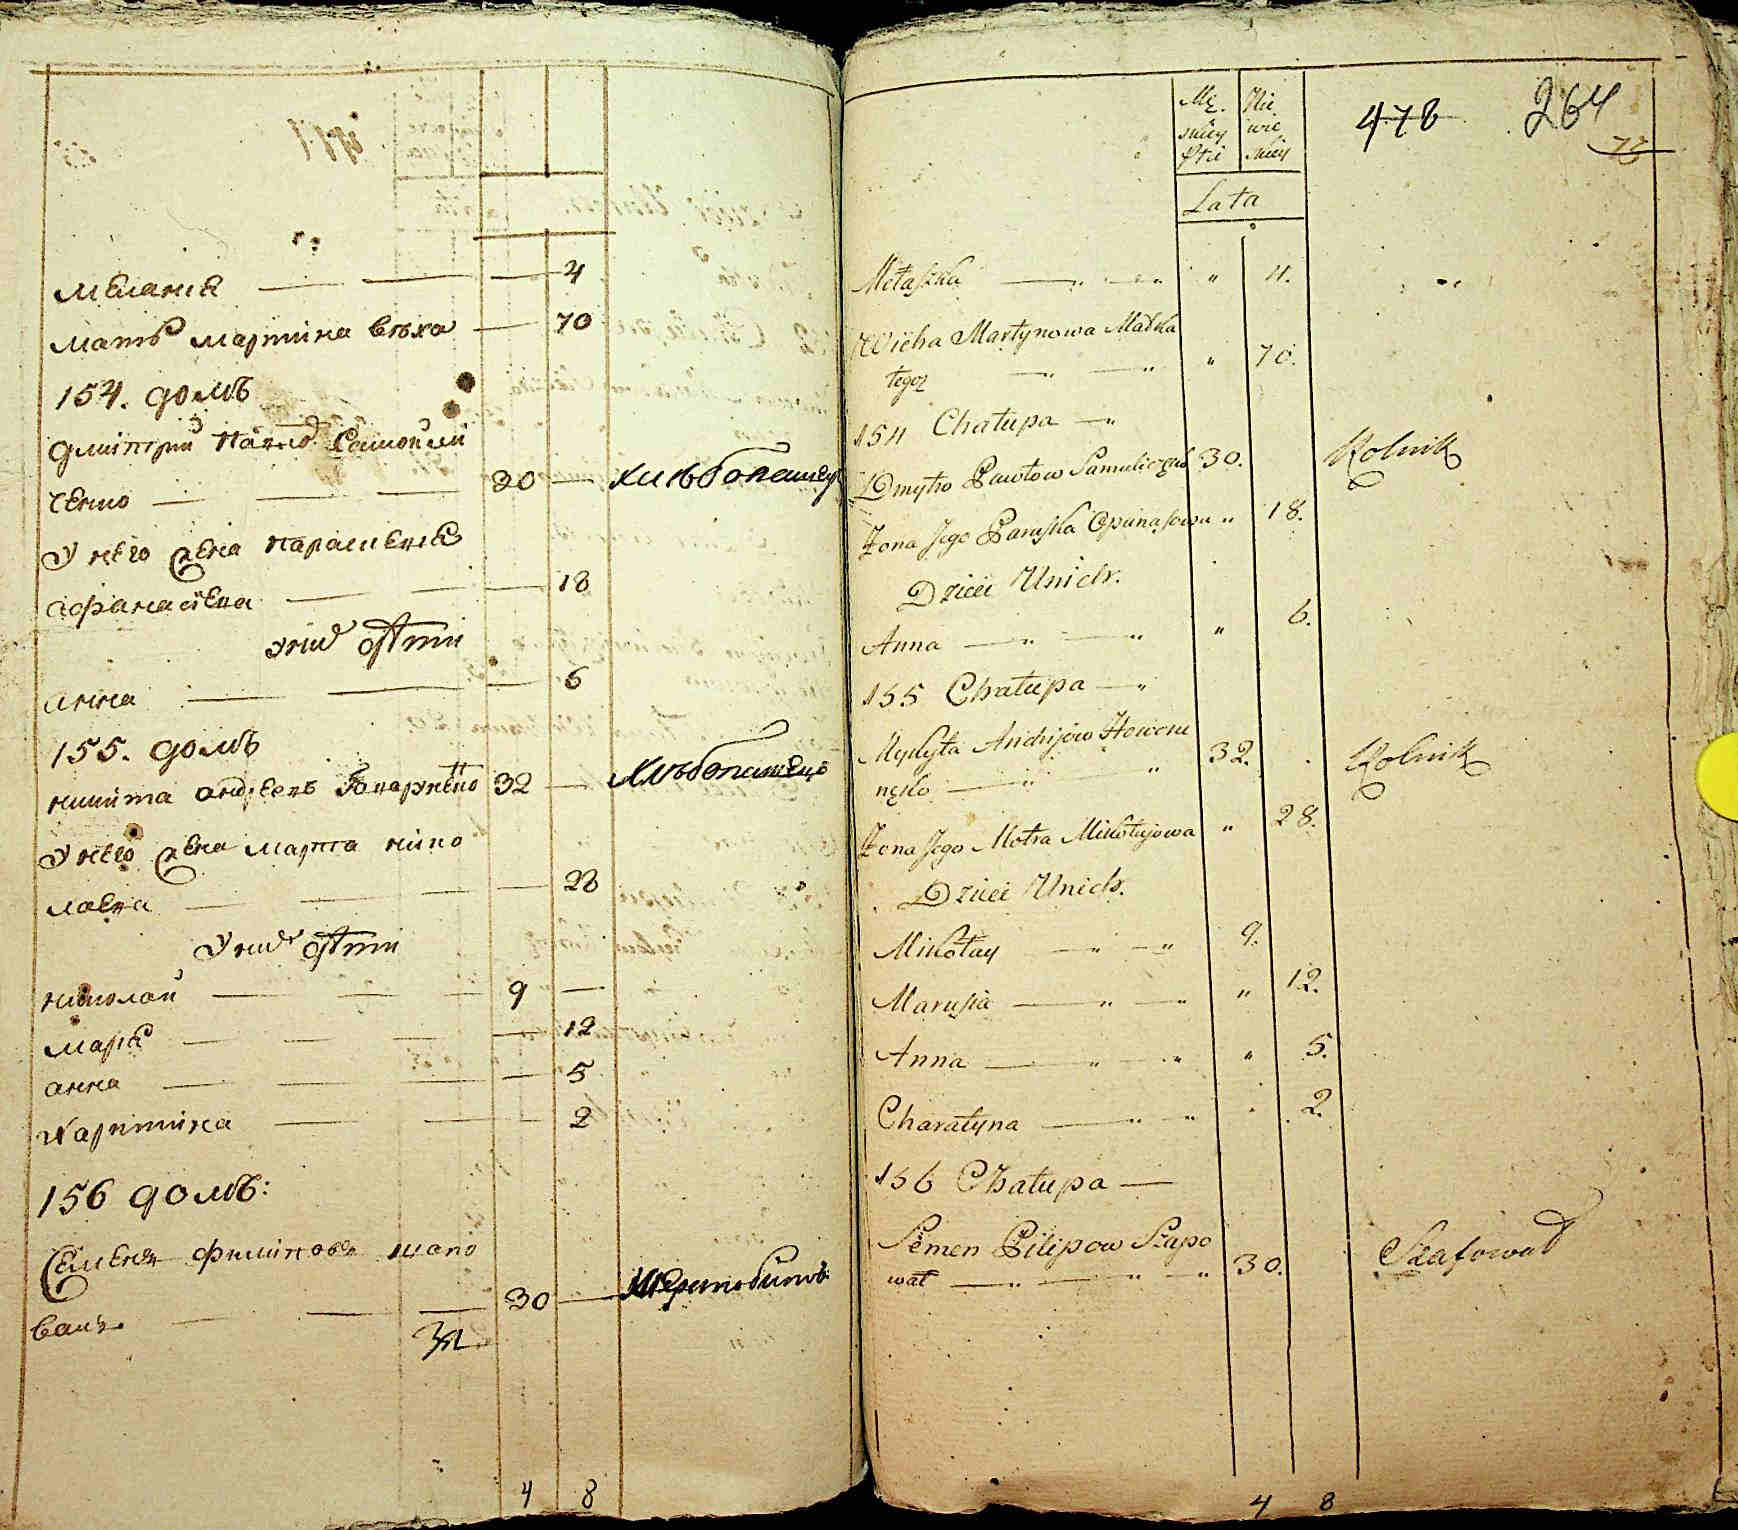 меланія — — — 4
мать мартина вѣха — 70
154. домъ
дмитрій павлов Самойли
ченко — — — 30 — хлѣбопашец
У него жена параскевія
афанасіева — — — 18
У них дѣти
анна — — — 6
155. домъ
никита андреевъ 32 — Хлѣбопашецъ
У него жена марта нико
лаева — — — 28
У них дѣти
николай — — — 9 —
марія — — — 12
анна — — — 5
харитина — — — 2
156 домъ:
Семенъ филиповъ шапо
валъ — — — 30 —
4 8
Mę Nie
Lata
478 264
Mełaszka — „ — „ „ 4.
Wicha Martynowa Matka
tegoz — „ — „ „ 70.
154 Chałupa — „
Dmytro Pawłow Samuliczenko 30. Rolnik
Żona Jego Paraska Opanasowa „ 18.
Dzieci Unich.
Anna — „ — „ „ 6.
155 Chałupa — „
Mykyta Andrijow Howore
nko — „ „ 32. Rolnik
Żona Jego Motra Mikołajowa „ 28.
Dzieci Unich.
Mikołay — „ — „ 9.
Marusia — „ — „ „ 12.
Anna — „ — „ „ 5.
Charatyna — „ — „ „ 2.
156 Chałupa —
Semen Pilipow Szapo
wał — „ — „ — „ 30.
4 8